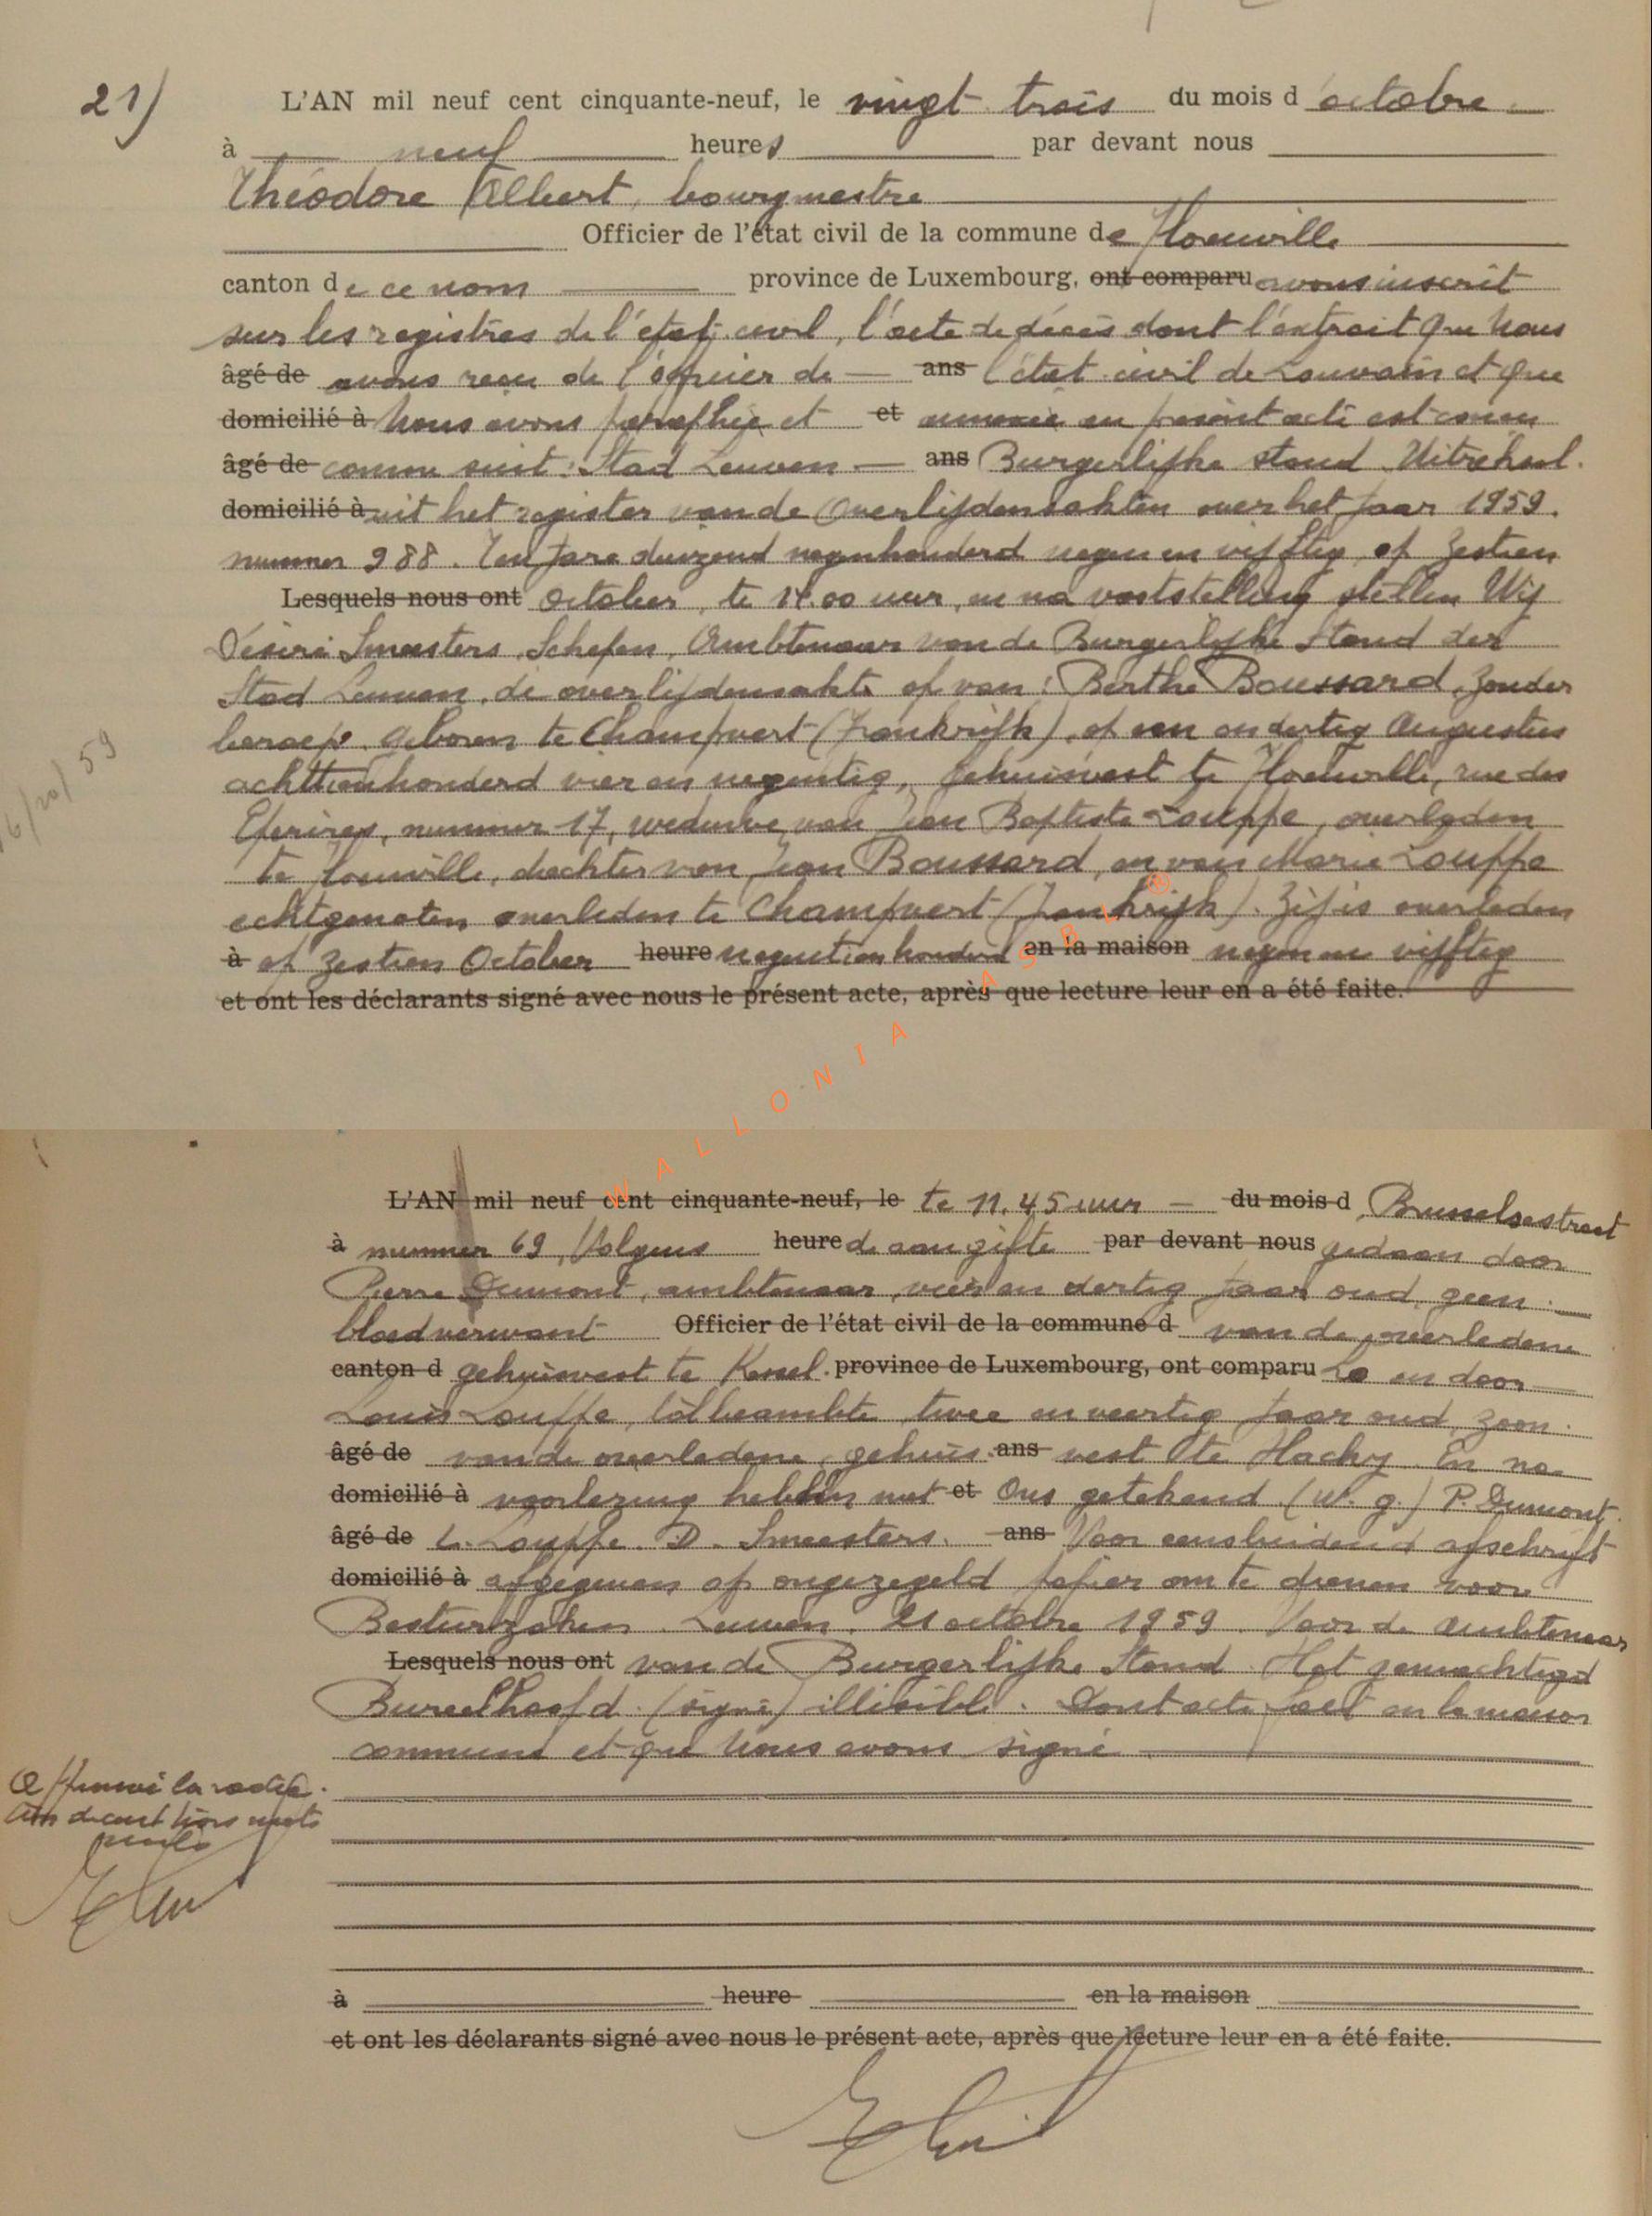 21)
L'AN mil neuf cent cinquante-neuf, le vingt trois du mois d'octobre
à neuf heures par devant nous
Théodore Albert, bourgmestre
Officier de l'état civil de la commune de Florenville
canton de ce nom province de Luxembourg, ont comparu avons inscrit
sur les registres de l'état civil, l'acte de décès dont l'extrait que Nous
âgé de avons reçu de l'officier de ans l'état civil de Louvain et que
domicilié à Nous avons paraphé et et annexé au présent acte est conçu
âgé de comme suit : Stad Leuven ans Burgerlijke stand Uitreksel
domicilié à uit het register van de Overlijdensakten over het jaar 1959.
nummer 988. Ten jare duizend negenhonderd negen en vijftig, op zestien
Lesquels nous ont October, te 14.00 uur, en na vaststelling stellen Wij
Désiré Smeesters, Schepen, Ambtenaar van de Burgerlijke Stand der
Stad Leuven, de overlijdensakte op van : Berthe Boussard, zonder
beroep, geboren te Champvert (Frankrijk), op een en dertig Augustus
achttienhonderd vier en negentig, gehuisvest te Florenville, rue des
Eperires, nummer 17, weduwe van Jean Baptiste Louppe, overleden
te Florenville, dochter van Jean Boussard, en van Marie Louppe
echtgenoten overleden te Champvert (Frankrijk). Zij is overleden
à op zestien October heure negentienhonderd en la maison negen en vijftig
et ont les déclarants signé avec nous le présent acte, après que lecture leur en a été faite.
16/10/59
WALLONIA ASBL ®
L'AN mil neuf cent cinquante-neuf, le te 11.45 uur du mois d Brusselsestraat
à nummer 69, Volgens heure de aangifte par devant nous gedaan door
Pierre Dumont, ambtenaar, vier en dertig jaar oud, geen
bloedverwant Officier de l'état civil de la commune d van de overledene
canton d gehuisvest te Kessel. province de Luxembourg, ont comparu Lo en door
Louis Louppe, tolbeambte, twee en veertig jaar oud, zoon
âgé de van de overledene, gehuis ans vest te Hachy. En na
domicilié à voorlezing hebben met et Ons getekend (w. g.) P. Dumont
âgé de L. Louppe. D. Smeesters. ans Voor eensluidend afschrift
domicilié à afgegeven op ongezegeld papier om te dienen voor
Bestuurzaken. Leuven, 21 octobre 1959. Voor de Ambtenaar
Lesquels nous ont van de Burgerlijke Stand. Het gemachtigd
Bureelhoofd. (signé) illisible. Dont acte fait en la maison
commune et que Nous avons signé
Approuvé la radia-
tion de cent trois mots
nuls
à heure en la maison
et ont les déclarants signé avec nous le présent acte, après que lecture leur en a été faite.